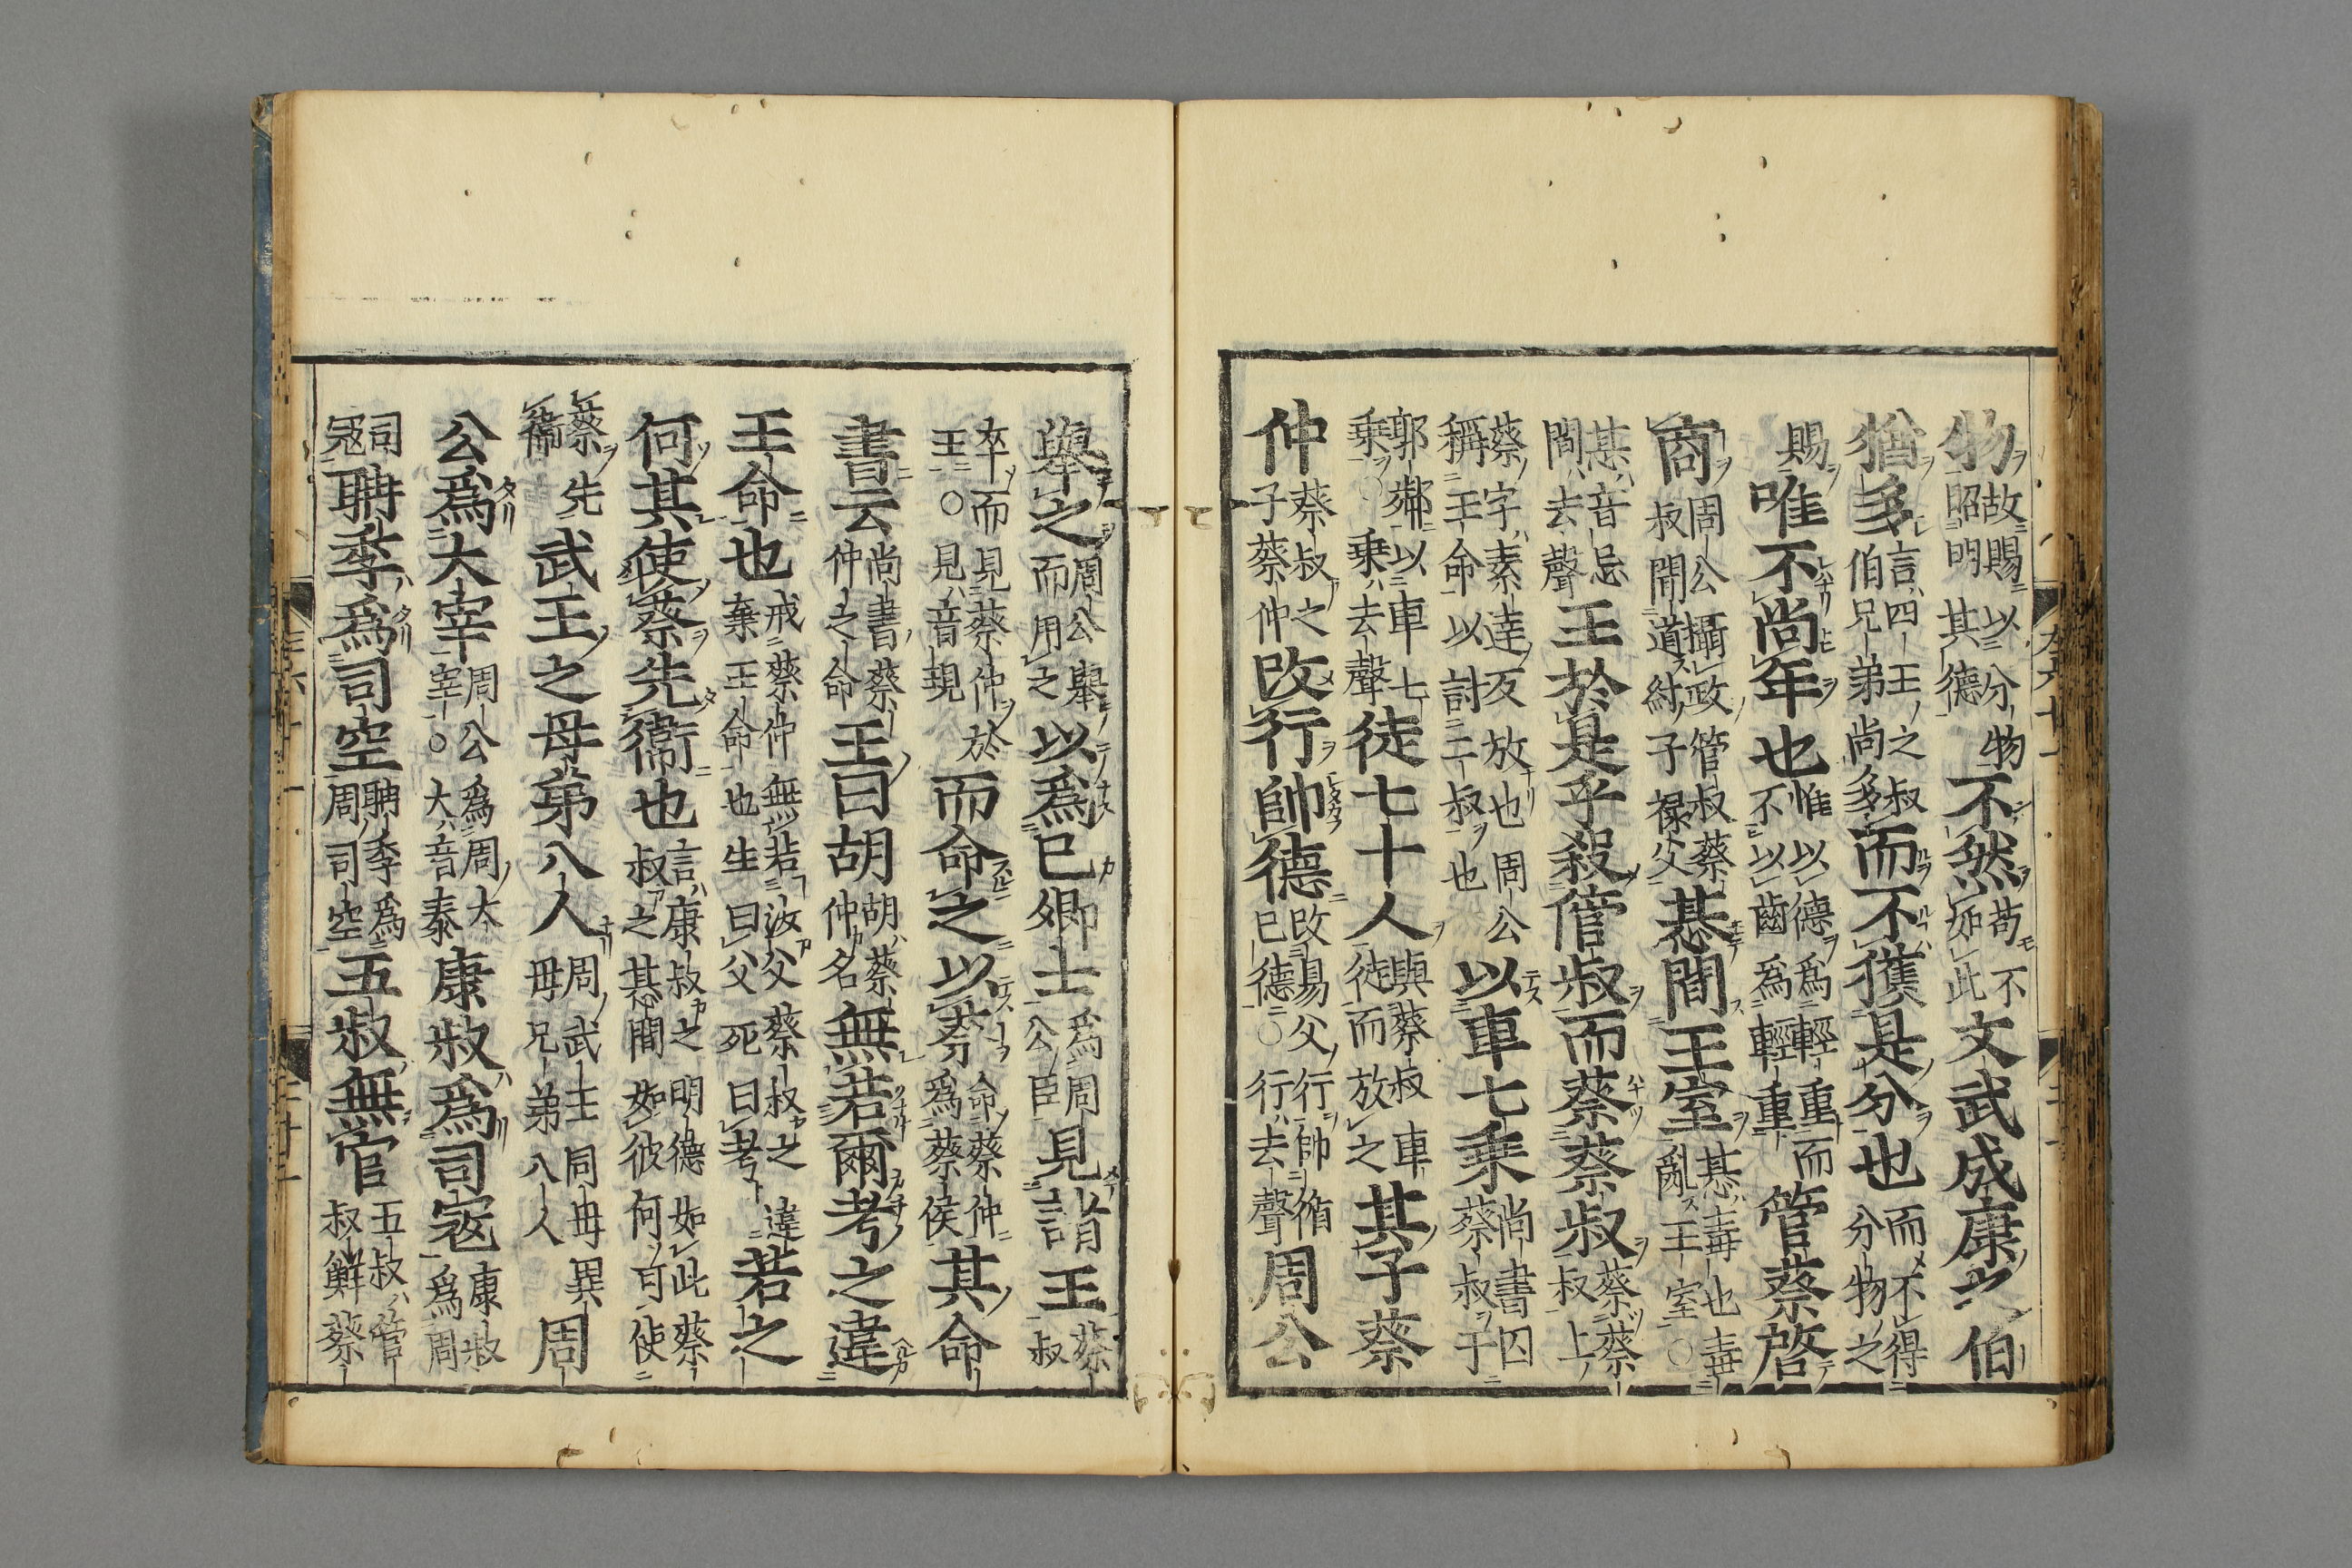 物故賜以分物昭明其德不然苟不如此文武成康之伯
猶多言四王之叔伯兄弟尚多而不獲是分也而不得分物之
賜唯不尚年也惟以德爲輕重而不以齒爲輕重管蔡啓
商周公攝政管叔蔡叔開道紂子祿父惎間王室惎毒也毒亂王室○
惎音忌間去聲王於是乎殺管叔而蔡蔡叔蔡蔡叔上
蔡字素達反放也周公稱王命以討二叔也以車七乘尚書囚蔡叔于
郭鄰以車七乘○乘去聲徒七十人與蔡叔車徒而放之其子蔡
仲蔡叔之子蔡仲改行帥德改易父行帥脩己德○行去聲周公
舉之周公舉而用之以爲己卿士爲周公臣見諸王蔡叔
卒而見蔡仲於王○見音現而命之以蔡命蔡仲爲蔡侯其命
書云尚書蔡仲之命王曰胡胡蔡仲名無若爾考之違
王命也戒蔡仲無若汝父蔡叔之違棄王命也生曰父死曰考若之
何其使蔡先衞也言康叔之明德如此蔡叔之惎間如彼何可使
蔡先衞武王之母弟八人周武王同母異母兄弟八人周
公爲大宰周公爲周大宰○大音泰康叔爲司寇康叔爲周
司寇聃季爲司空聃季爲周司空五叔無官五叔管叔鮮蔡